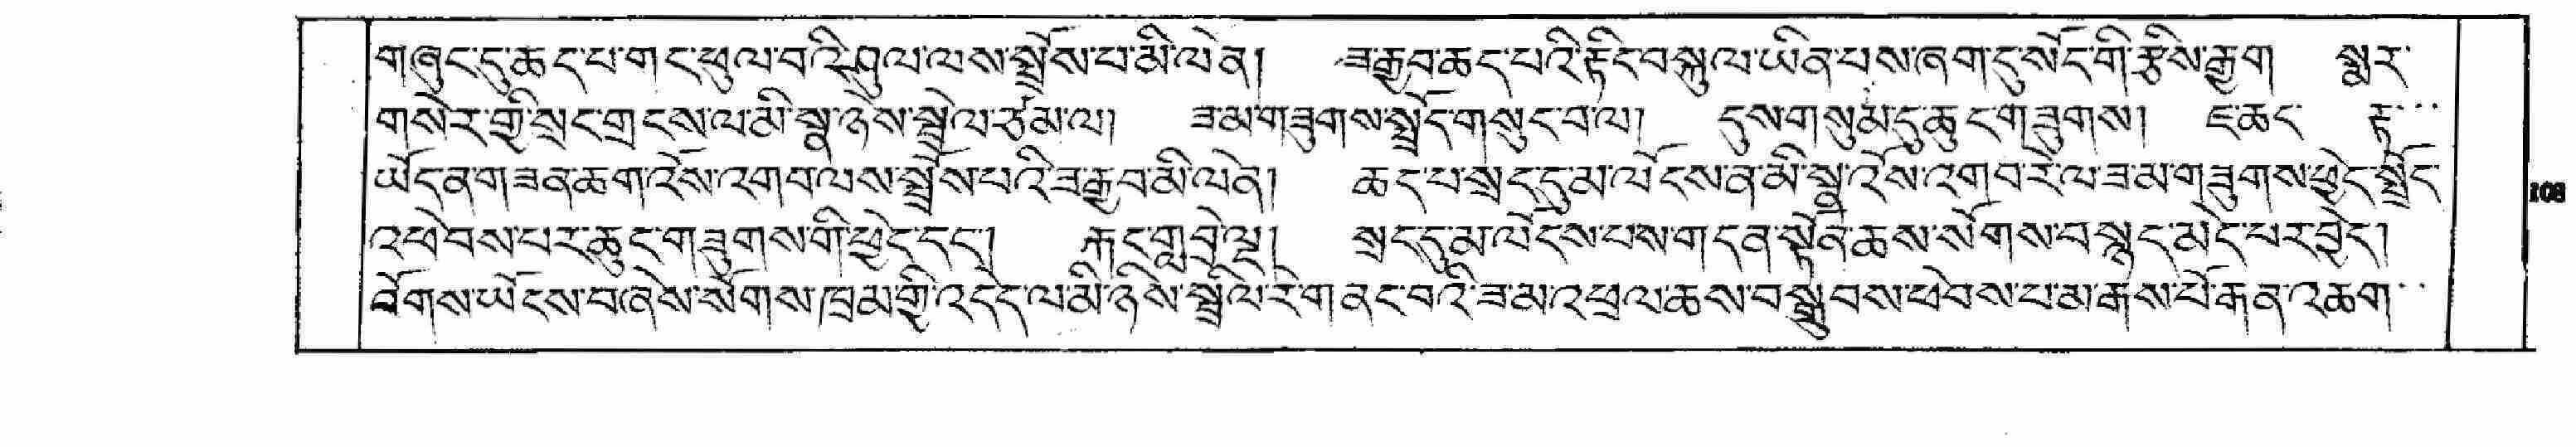 གཞུང་དུ་ཆད་པ་གང་ཕུལ་བའི་ཤུལ་ལས་སྤྲོས་པ་མི་ལེན། ཟ་རྒྱབ་ཆད་པའི་རྟིང་བསྐུལ་ཡིན་པས་ཞག་དུ་སོད་གི་རྩིས་རྒྱག སྨར་
གསེར་གྱི་སྲང་གྲངས་ལ་མི་སྣ་ཉེས་སྦྲེལ་ཙམ་ལ། ཟ་མ་གཟུགས་སྤྲོད་གསུང་བ་ལ། དུས་གསུམ་དུ་ཆུང་གཟུགས། ཇ་ཆང་ རྟ་
ཡོད་ན་གཟན་ཆག་འོས་འགབ་ལས་སྤྲོས་པའི་ཟ་རྒྱབ་མི་ལེན། ཆད་པ་སྲང་དུ་མ་ལོངས་ན་མི་སྣ་འོས་འགབ་རེ་ལ་ཟ་མ་གཟུགས་ཕྱེད་སྤྲོད་
འཕེབས་པར་ཆུང་གཟུགས་གི་ཕྱེད་དང་། རྐང་གླ་བྲེལ། སྲང་དུ་མ་ལོངས་པས་གདན་སྟོན་ཆས་སོགས་བསླང་མེད་པར་བྱེད།
བོགས་ཡོངས་བཞེས་སོགས་ཁྲམ་གྱི་འདེད་ལ་མི་ཉིས་སྦྲེལ་རེ་གནང་བའི་ཟ་མ་འཕྲལ་ཆས་བསྒྲུབས་ཕེབས་པ་མ་རྒས་པོ་རྒན་འཆག